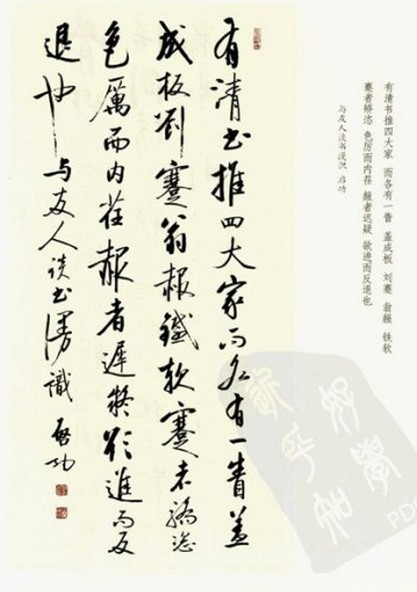 有清书推四大家而各有一眚盖
成板劉蹇翁赧鐵軟蹇者驕恣
色厲而内荏赧者遲疑欲進而反
退也 与友人谈书漫識 啓功
有清书推四大家 而各有一眚 盖成板 刘蹇 翁赧 铁软
蹇者骄恣 色厉而内荏 赧者迟疑 欲进而反退也
与友人谈书漫识 启功